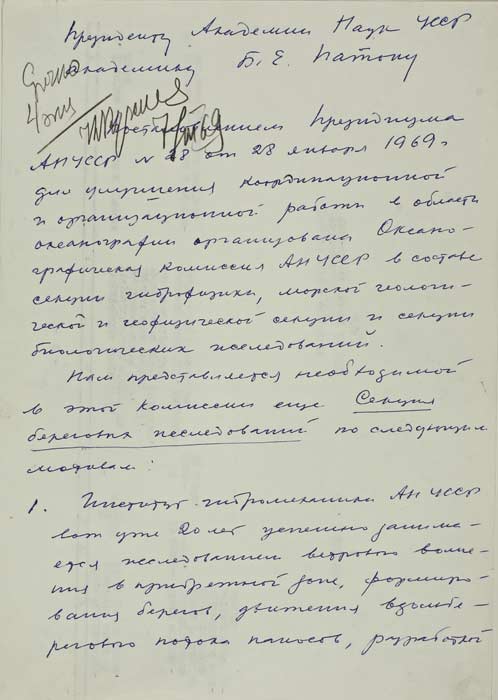 Президенту Академии Наук УССР
академику Б. Е. Патону
Срочно
4 экз
7/IV 69
Постановлением Президиума
АН УССР № 28 от 28 января 1969 г
для улучшения координационной
и организационной работы в области
океанографии организована Океано-
графическая Комиссия АН УССР в составе
секции гидрофизики, морской геологи-
ческой и геофизической секции и секции
биологических исследований.
Нам представляется необходимой
в этой Комиссии еще Секция
береговых исследований по следующим
мотивам:
1. Институт гидромеханики АН УССР
вот уже 20 лет успешно занима-
ется исследованием ветрового волне-
ния в прибрежной зоне, формиро-
вания берегов, движения вдольбе-
регового потока наносов, разработкой